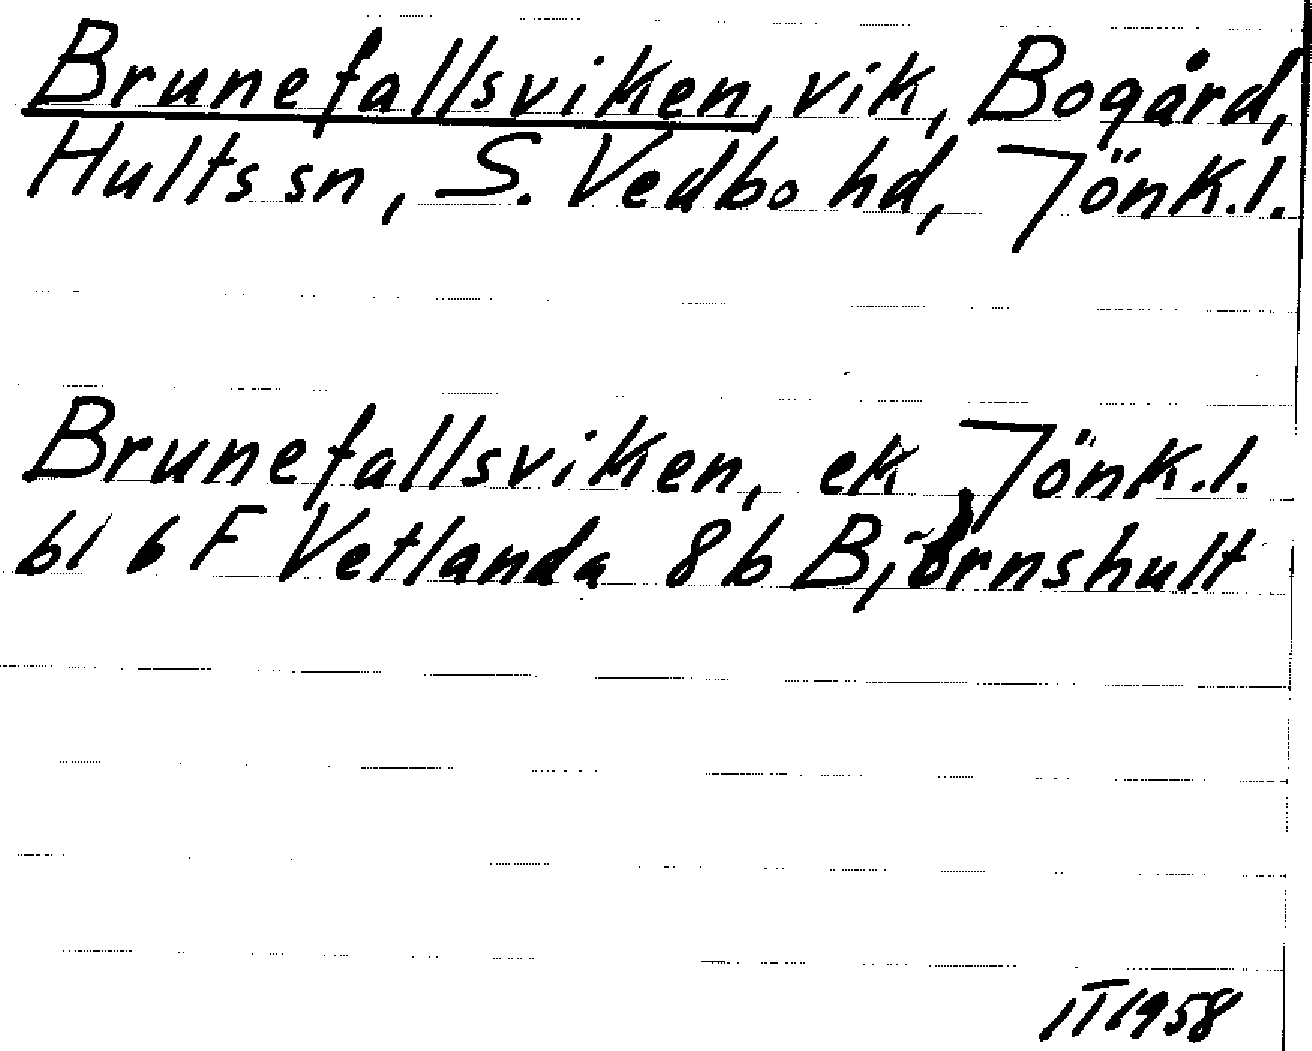 Brunefallsviken, vik, Bogård,
Hults sn, S. Vedbo hd, Jönk.l.
Brunefallsviken, ek Jönk.l.
bl 6 F Vetlanda 8b Björnshult
1958